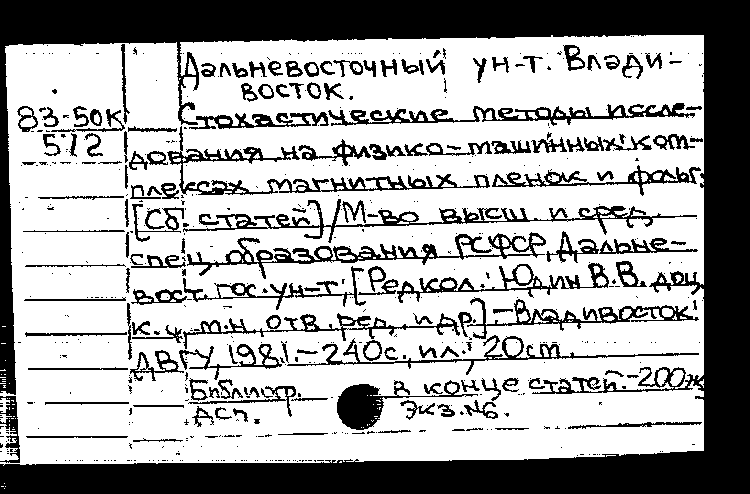 Дальневосточный ун-т. Влади-
восток.
83-50к
572
Стохастические методы иссле-
дования на физико-машинных ком-
плексах магнитных пленок и фольг:
[Сб. статей]/М-во высш. и сред.
спец. образования РСФСР, Дальне-
вост. гос. ун-т; [Редкол.: Юдин В.В. доц.
к. ч. т.н., отв. ред., и др.].-Владивосток:
ДВГУ, 1981.-240с., ил.; 20см.
Библиогр. в конце статей.-200ж
ДСП. экз.№6.